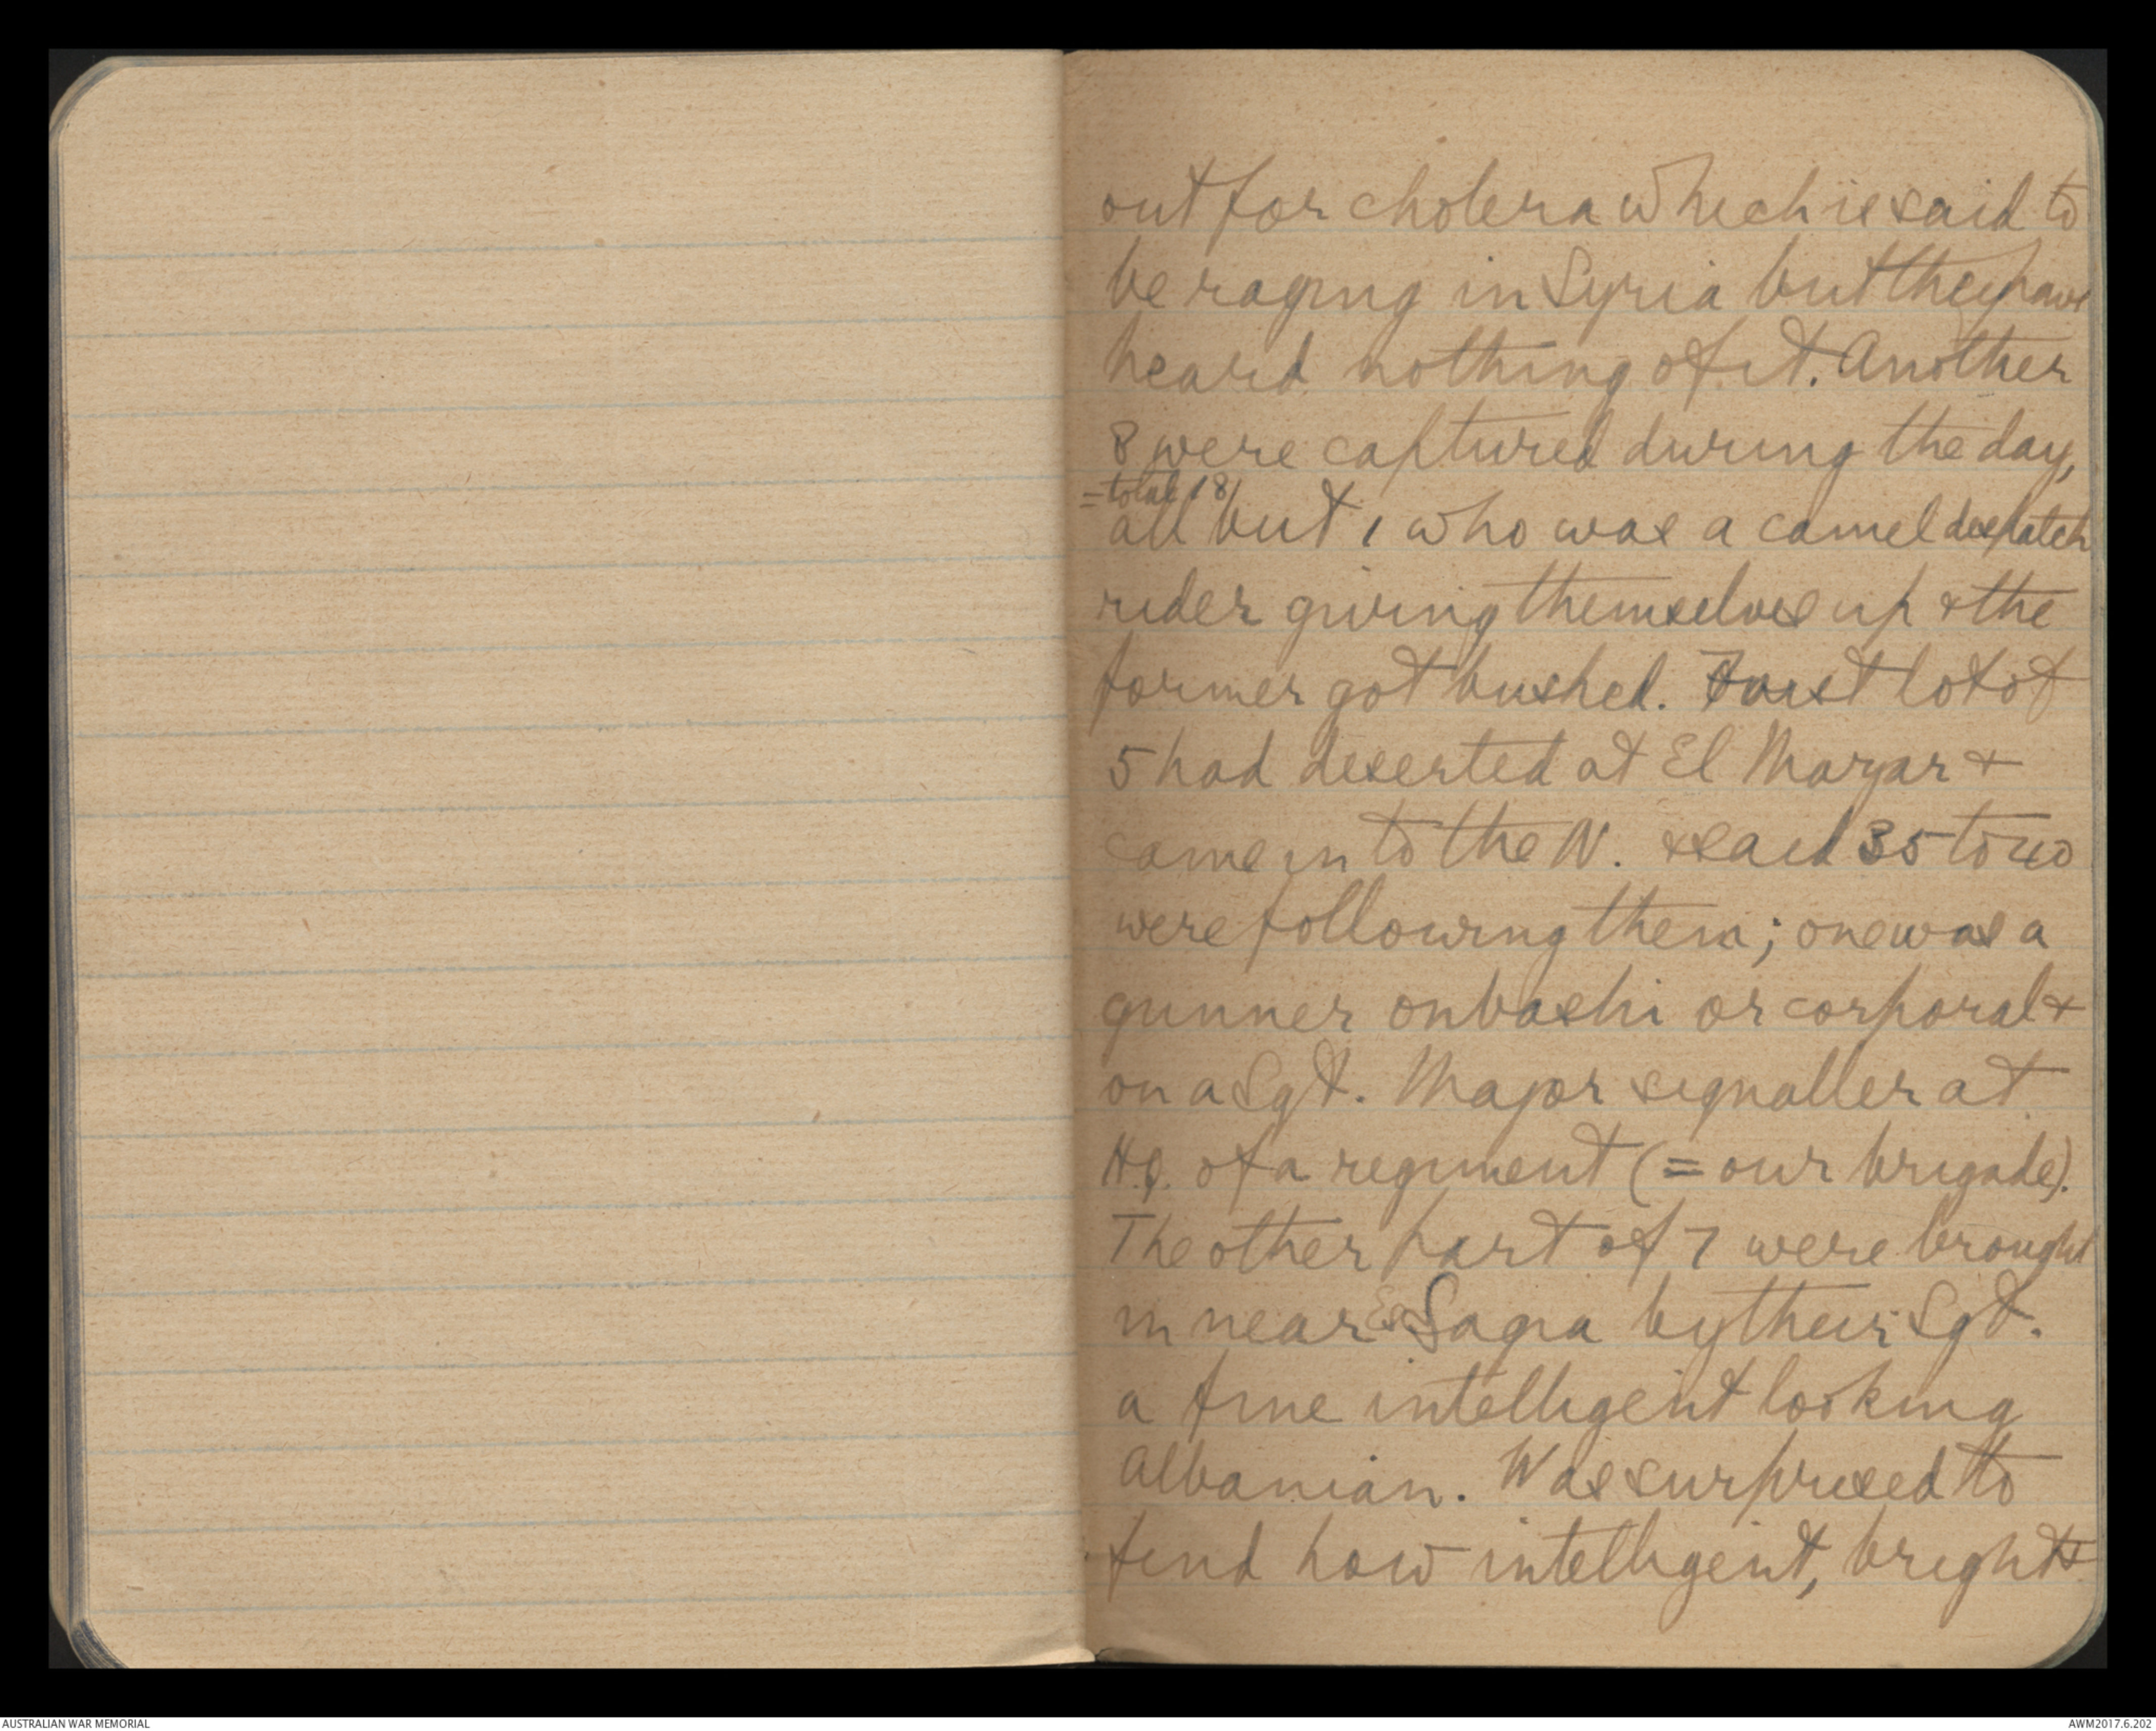 out for cholera which is said to
be raging in Syria but they have
heard nothing of it. Another
8 were captured during the day,
= total 18
all but 1 who was a camel despatch
rider giving themselves up & the
former got bushed. First lot of
5 had deserted at El Mazar &
came in to the N. & said 35 to 40
were following them; one was a
gunner onbashi or corporal &
on a Sgt. Major signaller at
H.Q. of a regiment (= our brigade).
The other part of 7 were brought
in near Es Sagia by their Sgt.
a fine intelligent looking
Albanian. Was surprised to
find how intelligent, bright &
AUSTRALIAN WAR MEMORIAL
AWM2017.6.202